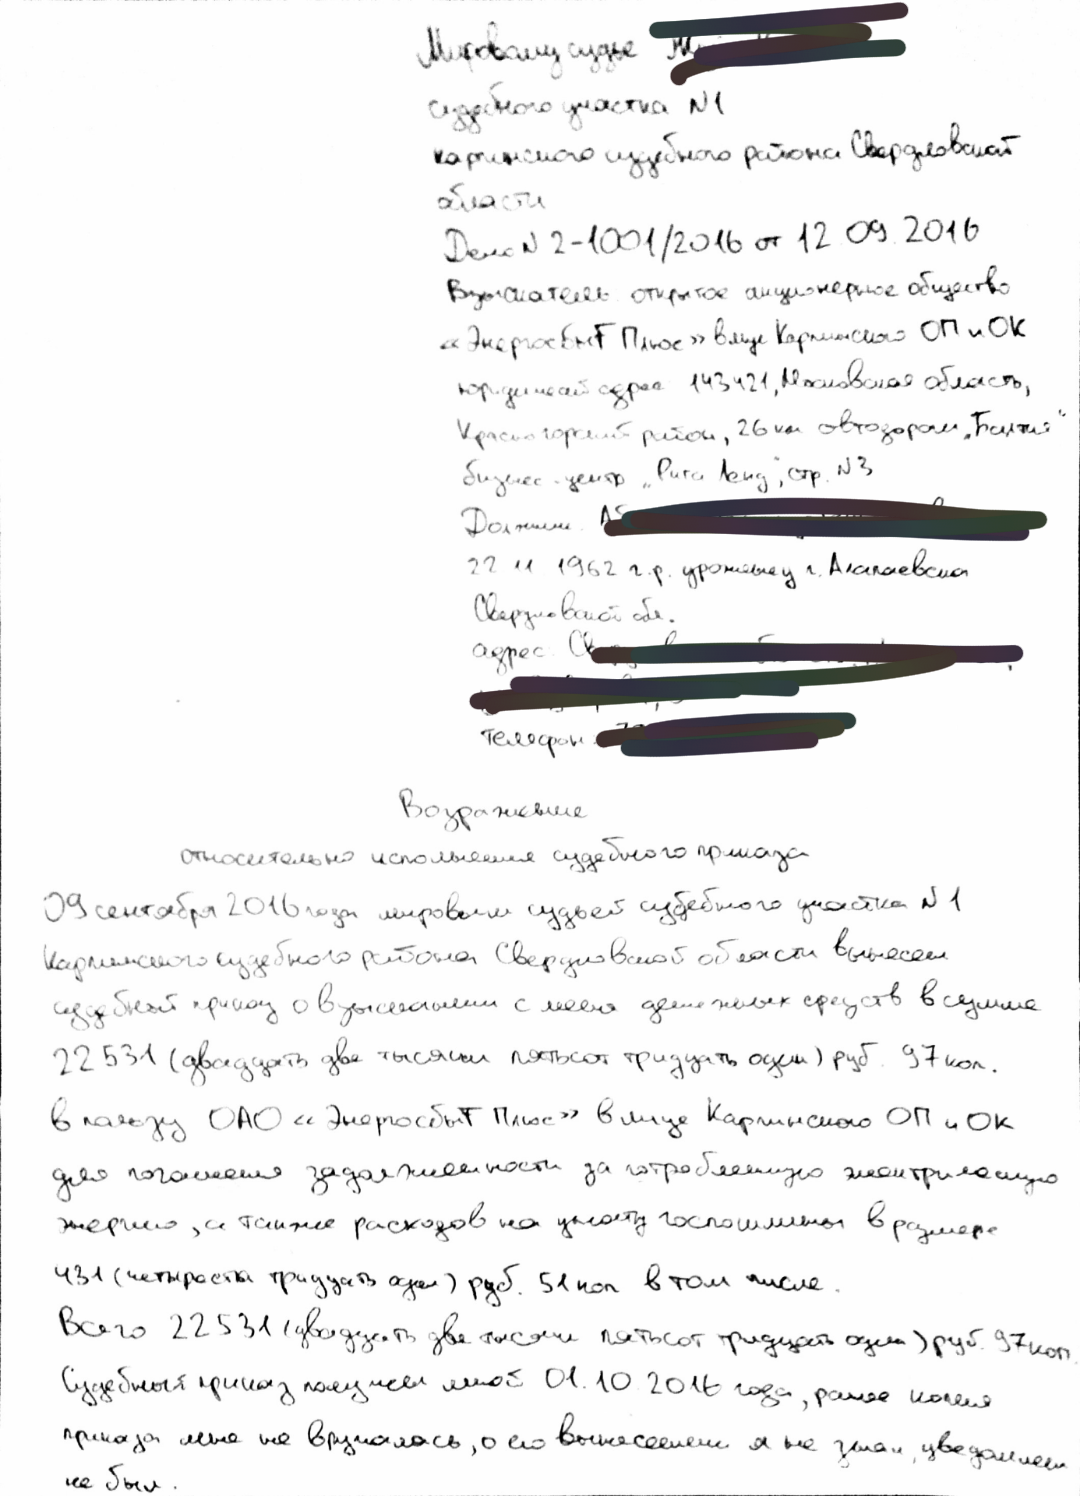 Мировому судье
судебного участка N1
карпинского судебного района Свердловской
области
Дело N 2-1001/2016 от 12 09 2016
Взыскатель: открытое акционерное общество
«ЭнергосбыТ Плюс» в лице Карпинского ОП и ОК
юридический адрес 143421, Московская область,
Красногорский район, 26 км автодороги „Балтия“
бизнес-центр „Рига Ленд“, стр. N3
Должник
22 11 1962 г.р. уроженец г. Алапаевска
Свердловской обл.
адрес:
телефон
Возражение
относительно исполнения судебного приказа
09 сентября 2016 года мировым судьей судебного участка N1
Карпинского судебного района Свердловской области вынесен
судебный приказ о взыскании с меня денежных средств в сумме
22531 (двадцать две тысячи пятьсот тридцать один) руб. 97 коп.
в пользу ОАО «ЭнергосбыТ Плюс» в лице Карпинского ОП и ОК
для погашения задолженности за потребленную электрическую
энергию, а также расходов на уплату госпошлины в размере
431 (четыреста тридцать один) руб. 51 коп в том числе.
Всего 22531 (двадцать две тысячи пятьсот тридцать один) руб. 97 коп.
Судебный приказ получен мной 01.10.2016 года, ранее копия
приказа мне не вручалась, о его вынесении я не знал, уведомлен
не был.